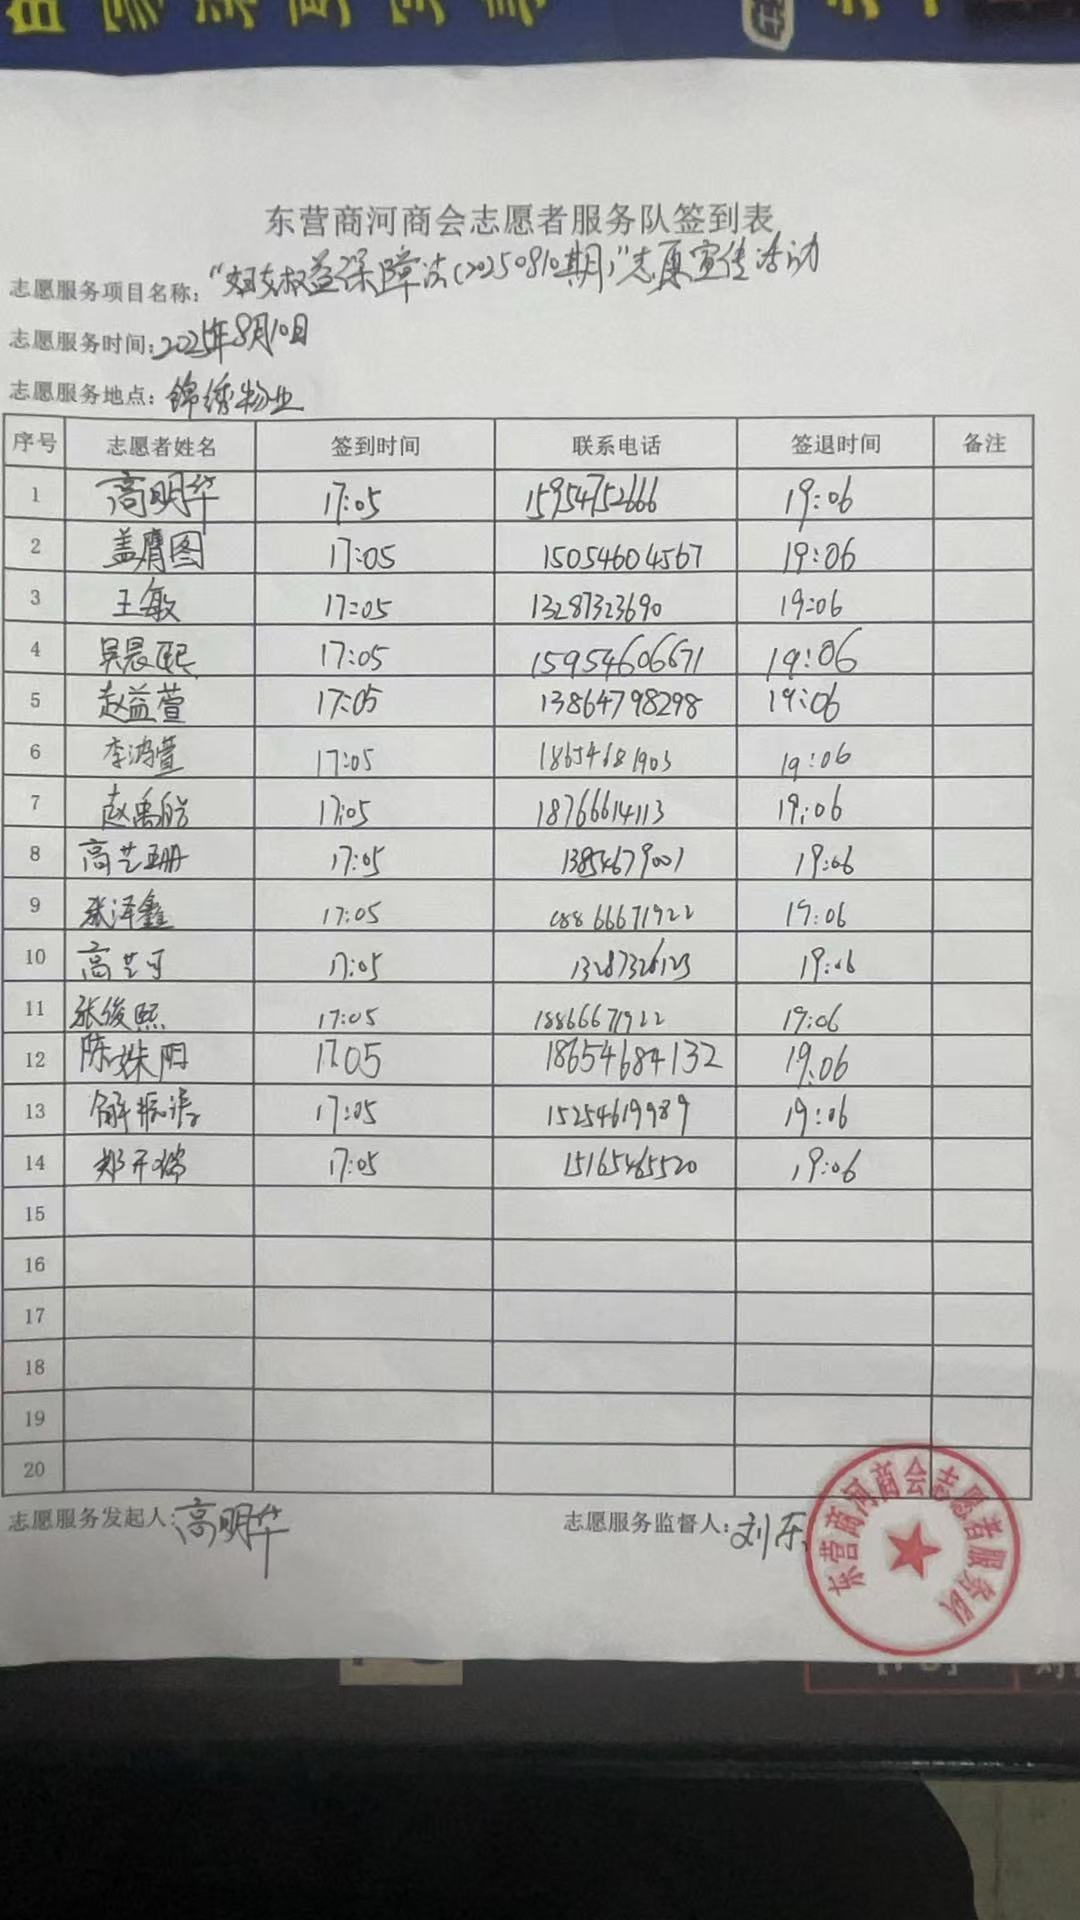 东营商河商会志愿者服务队签到表
志愿服务项目名称："妇女权益保障法(20250810期)"志愿宣传活动
志愿服务时间：2025年8月10日
志愿服务地点：锦绣物业
序号 志愿者姓名 签到时间 联系电话 签退时间 备注
1 高明华 17:05 15954752666 19:06
2 盖膺图 17:05 15054604567 19:06
3 王敏 17:05 13287323690 19:06
4 吴晨熙 17:05 15954606671 19:06
5 赵益萱 17:05 13864798298 19:06
6 李鸿萱 17:05 18654681903 19:06
7 赵禹皓 17:05 18766614113 19:06
8 高艺珊 17:05 13854679001 19:06
9 张泽鑫 17:05 18866671922 19:06
10 高艺可 17:05 13287326123 19:06
11 张俊熙 17:05 18866671922 19:06
12 陈姝阳 17:05 18654684132 19:06
13 解振涛 17:05 15254619989 19:06
14 郑开瑞 17:05 15165465520 19:06
15
16
17
18
19
20
志愿服务发起人：高明华 志愿服务监督人：刘乐
东营商河商会志愿者服务队